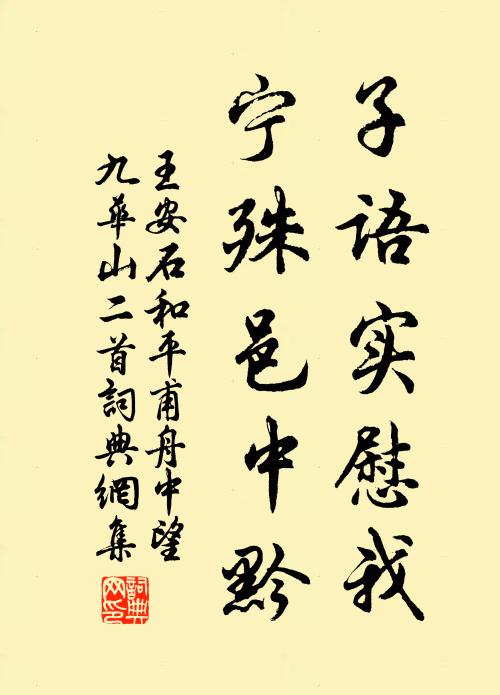 子语实慰我
宁殊邑中黔
王安石和平甫舟中望
九华山二首詞典網集
詞典
网印